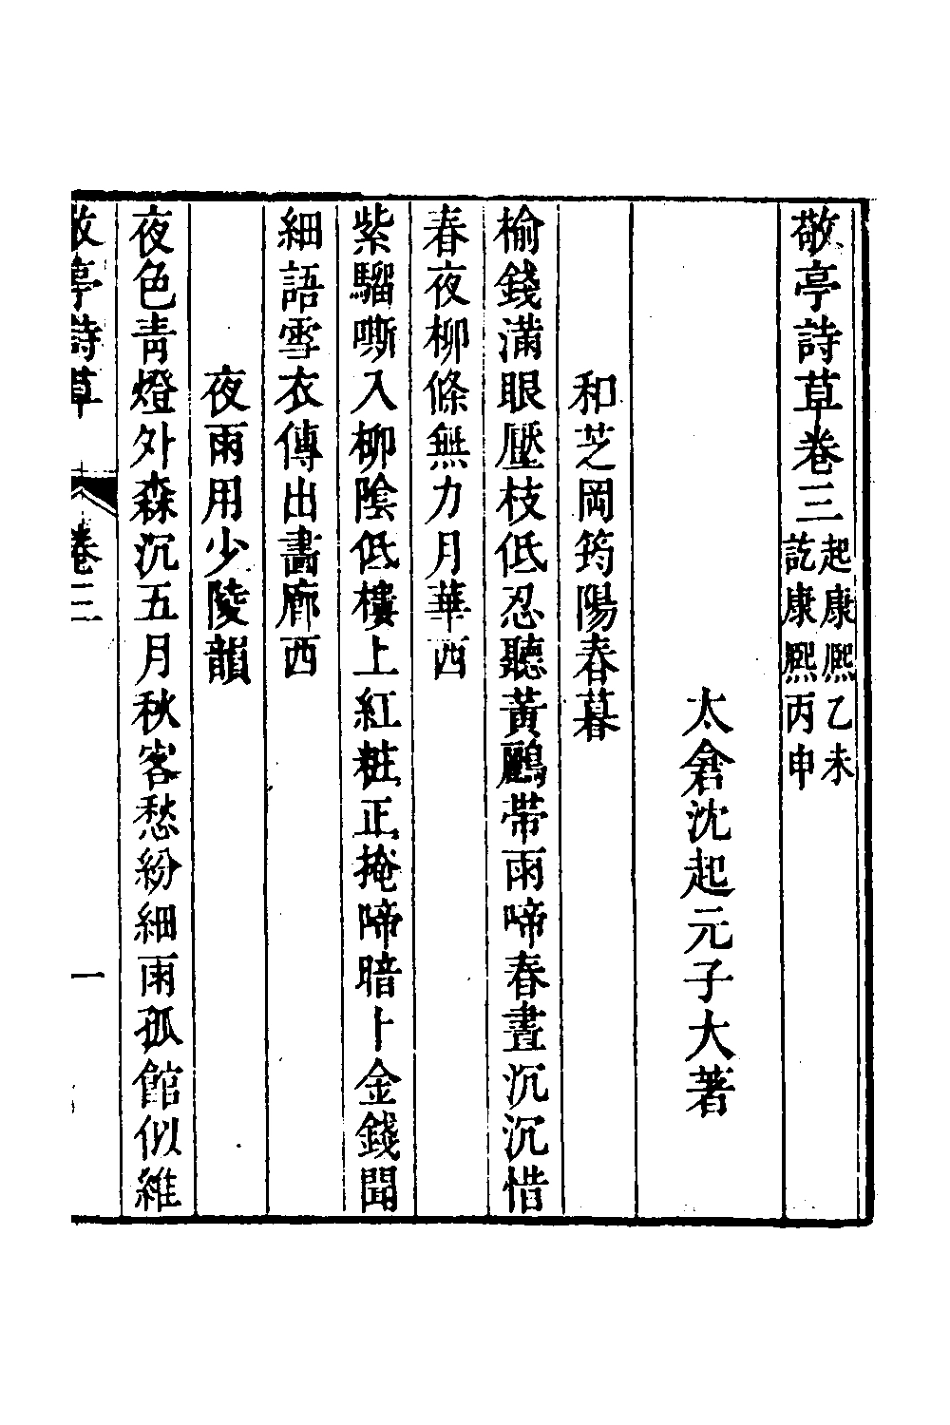 敬亭詩草卷三 起康熙乙未
訖康熙丙申
太倉沈起元子大著
和芝岡筠陽春暮
榆錢滿眼壓枝低忍聽黃鸝帶雨啼春晝沉沉惜
春夜柳條無力月華西
紫騮嘶入柳陰低樓上紅粧正掩啼暗卜金錢聞
細語雪衣傳出畵廊西
夜雨用少陵韻
夜色青燈外森沉五月秋客愁紛細雨孤館似維
敬亭詩草 卷三 一